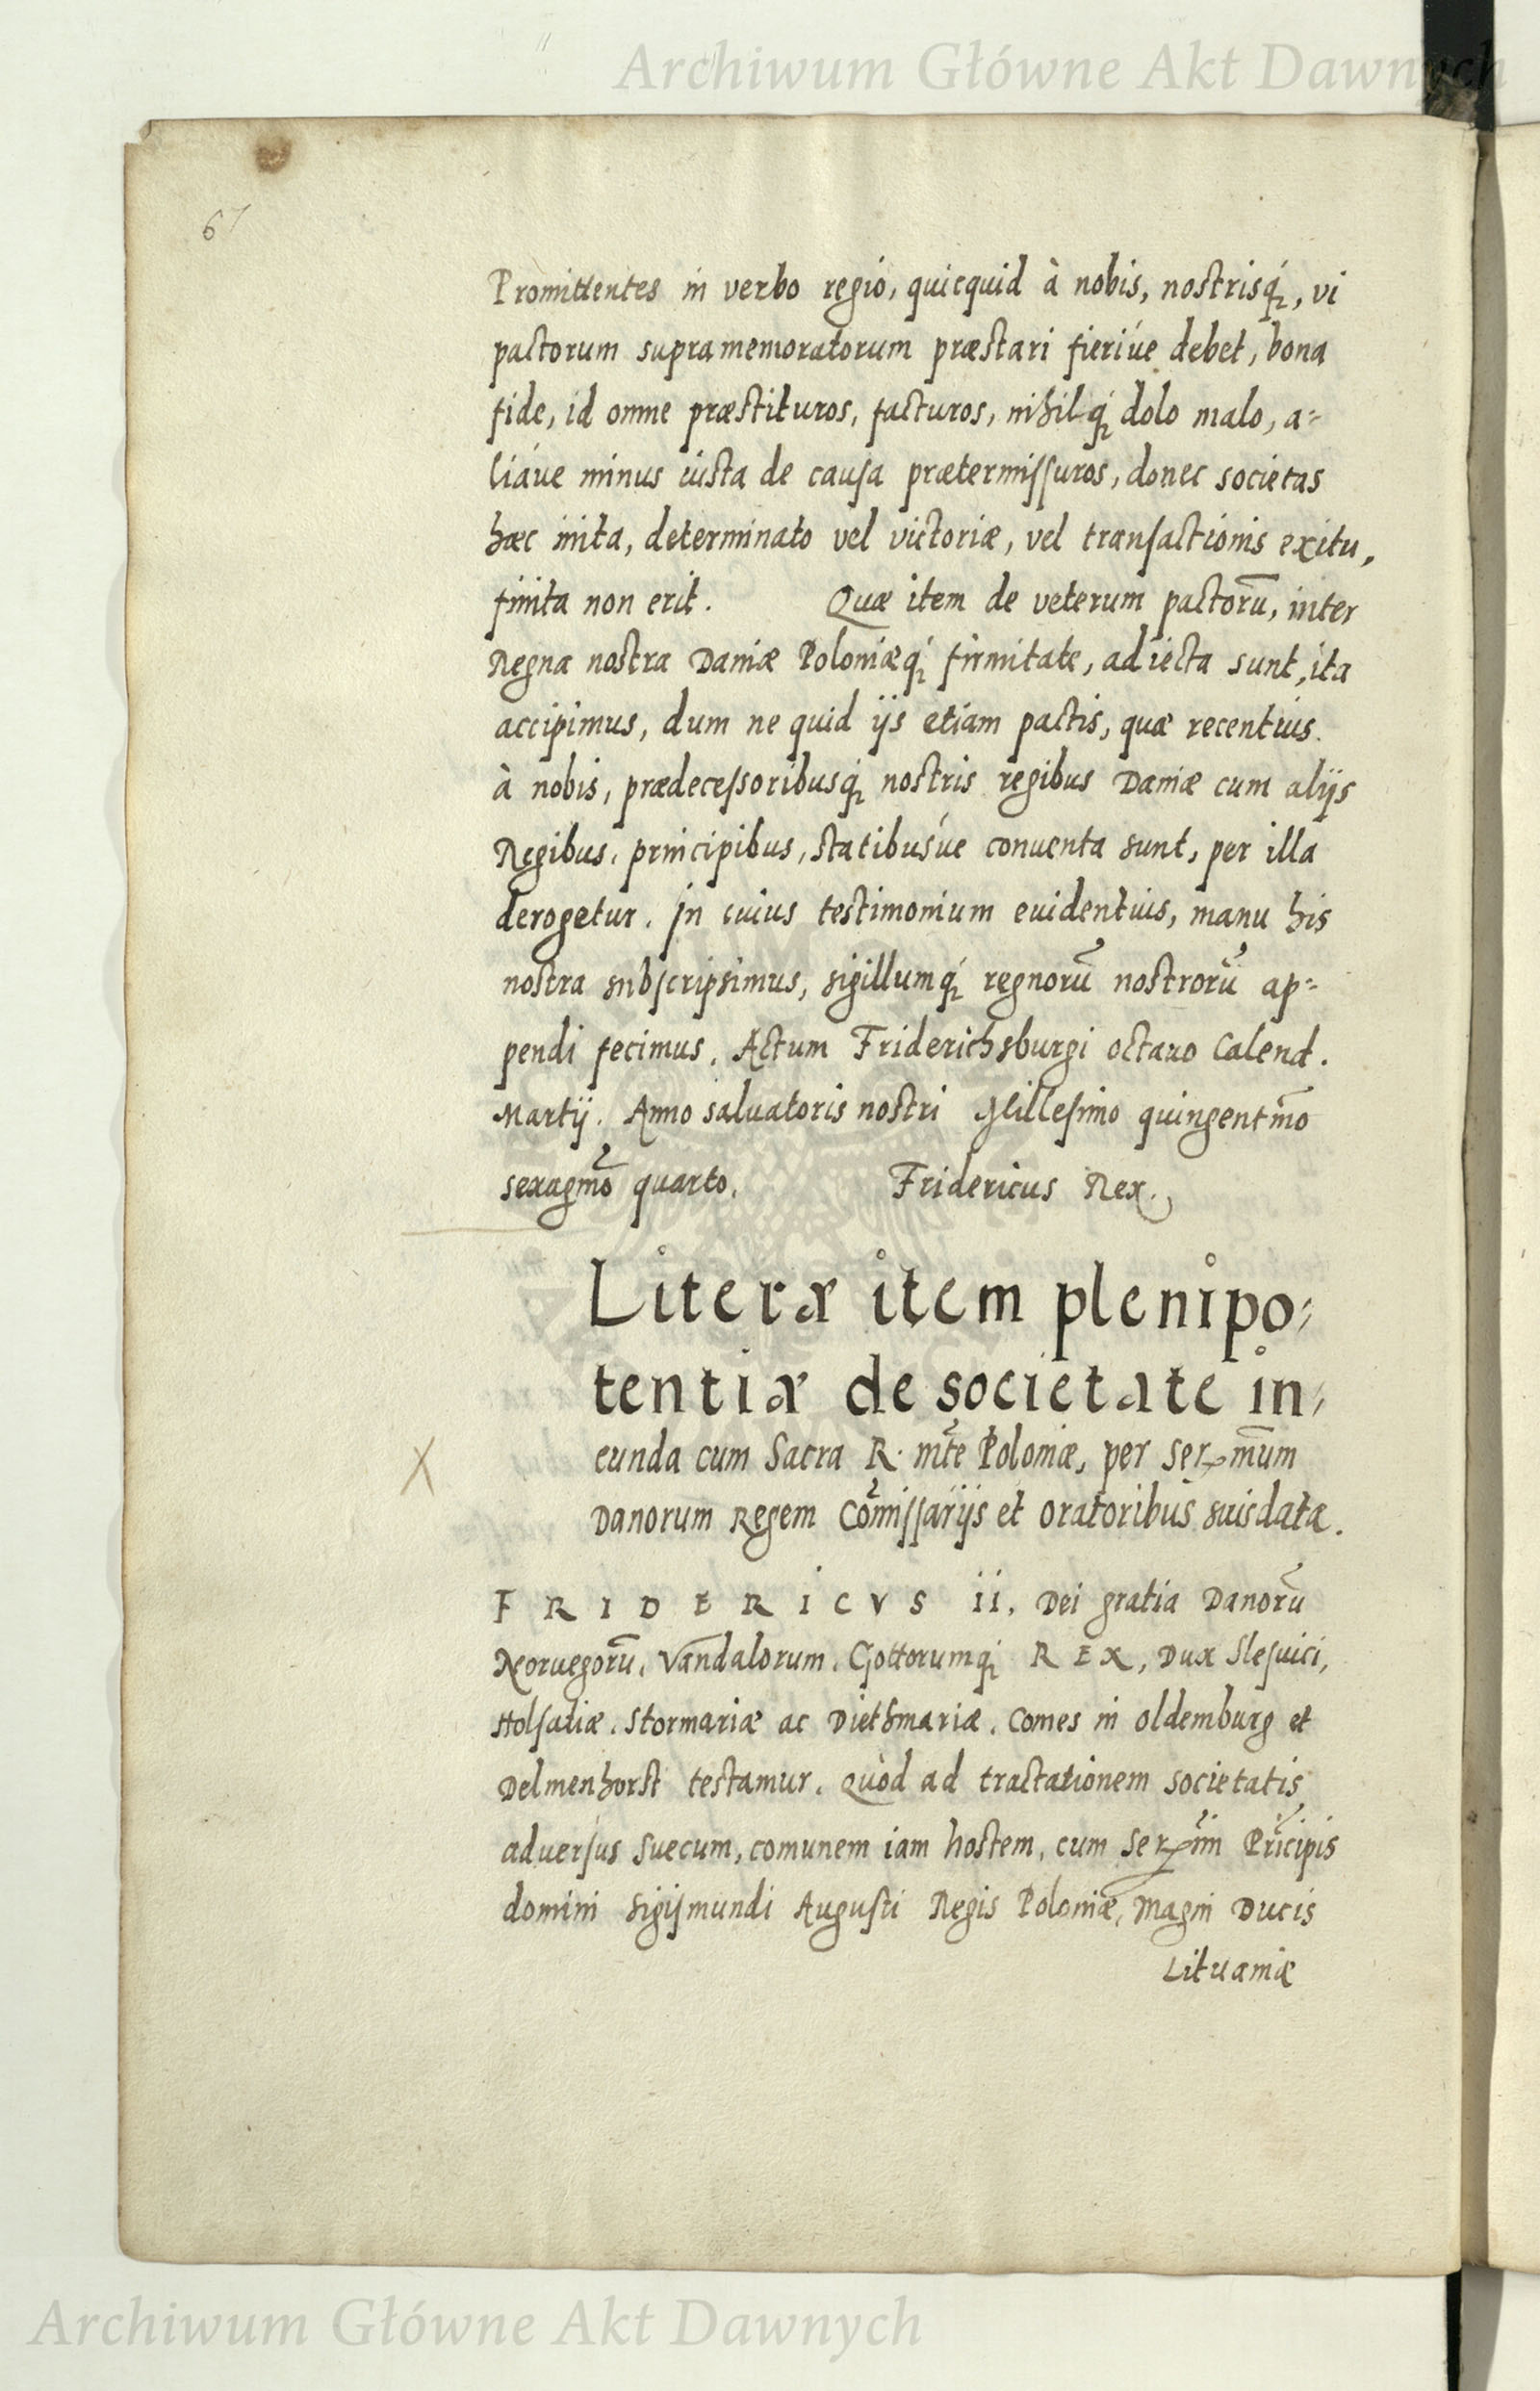 Archiwum Główne Akt Dawnych
67
Promittentes in verbo regio, quicquid à nobis, nostrisq́, vi
pactorum supramemoratorum præstari fieriúe debet, bona
fide, id omne præstituros, facturos, nihilq́ dolo malo, a-
liáue minus iusta de causa prætermissuros, donec societas
hæc inita, determinato vel victoriæ, vel transactionis exitu,
finita non erit. Quæ item de veterum pactorū, inter
Regna nostra Daniæ Poloniæq́ firmitate, adiecta sunt, ita
accipimus, dum ne quid ijs etiam pactis, quæ recentius
à nobis, prædecessoribusq́ nostris regibus Daniæ cum alijs
Regibus, principibus, statibusúe conuenta sunt, per illa
derogetur. In cuius testimonium euidentius, manu his
nostra subscripsimus, sigillumq́ regnorū nostrorū ap-
pendi fecimus. Actum Friderichsburgi octauo Calend.
Martij. Anno saluatoris nostri Millesimo quingentmō
sexagmō quarto. Fridericus Rex.
Literæ item plenipo-
tentiæ de societate in-
eunda cum Sacra R. mte Poloniæ, per Sermum
Danorum Regem Comissarijs et oratoribus suis datæ.
FRIDERICVS ii. Dei gratia Danorū
Noruegorū, Vandalorum, Gottorumq́ REX, Dux Slesuici,
Holsatiæ, Stormariæ ac Diethmariæ, Comes in Oldemburg et
Delmenhorst testamur. Quòd ad tractationem societatis
aduersus Suecum, comunem iam hostem, cum Sermi Pricipis
domini Sigismundi Augusti Regis Poloniæ, Magni Ducis
Lituaniæ
X
Archiwum Główne Akt Dawnych